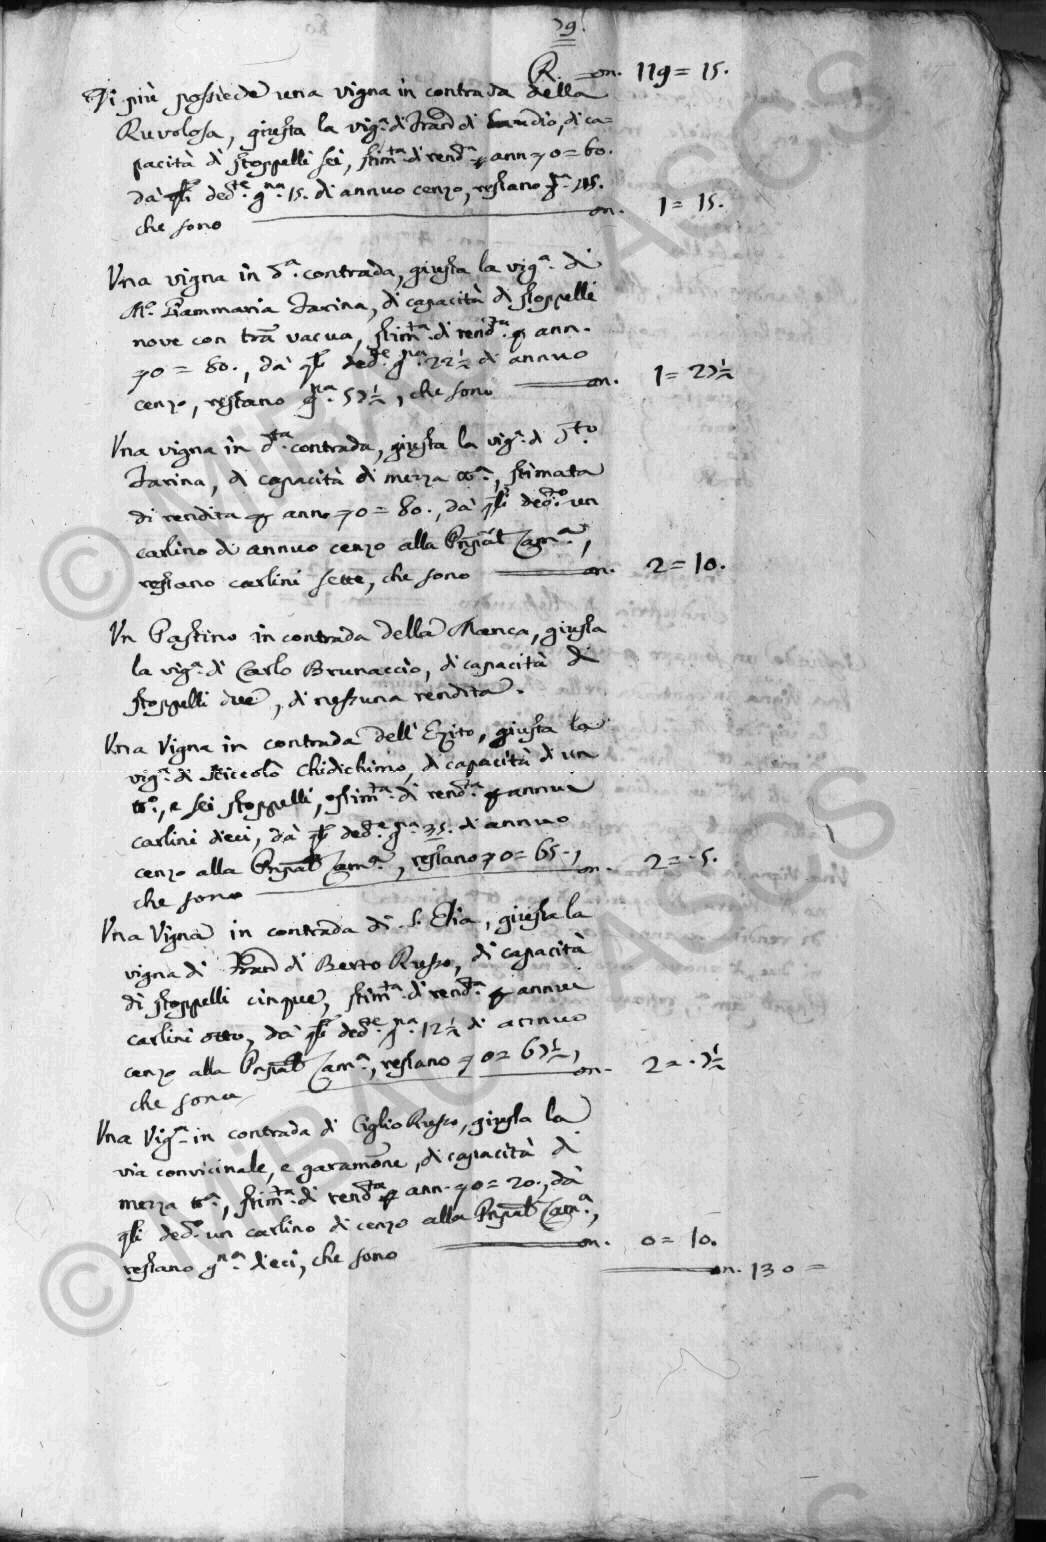 79.
R. on. 119 = 15.
Di più possiede una vigna in contrada della
Ruvolosa, giusta la vig.ª di Franc.º di Claudio, di ca=
pacità di stoppelli sei, stim.ta di rend.ª p ann. 70 = 60.
dà qli ded.te g.na 15. di annuo cenzo, restano g.ª 45.
che sono on. 1 = 15.
Una vigna in d.ª contrada, giusta la vig.ª di
M.º Giammaria Farina, di capacità di stoppelli
nove con trra vacua, stim.ta di rend.ta p ann.
70 = 80., dà qli ded.te g.na 22½ di annuo
cenzo, restano g.na 57½, che sono on. 1 = 27½
Una vigna in d.ta contrada, giusta la vig.ª di
Farina, di capacità di mezza tt.ª, stimata
di rendita p ann. 70 = 80., dà qli ded.º un
carlino di annuo cenzo alla Prnpal Cam.ª,
restano carlini sette, che sono on. 2 = 10.
Un Pastino in contrada della Manca, giusta
la vig.ª di Carlo Brunaccio, di capacità di
stoppelli due, di nessuna rendita.
Una Vigna in contrada dell' Ezito, giusta la
vig.ª di Niccolò Chidichimo, di capacità di un
tt.º, e sei stoppelli, stim.ta di rend.ª p annui
carlini dieci, dà qli ded.e g.na 35. di annuo
cenzo alla Prnpal Cam.ª, restano 70 = 65.,
che sono on. 2 = .5.
Una Vigna in contrada di S. Elia, giusta la
vigna di Franc.º di Berto Russo, di capacità
di stoppelli cinque, stim.ta di rend.ª p annui
carlini otto, dà qli ded.te g.na 12½ di annuo
cenzo alla Prnpal Cam.ª, restano 70 = 67½,
che sono on. 2 = .7½
Una Vig.ª in contrada di Ciglio Russo, giusta la
via convicinale, e garamone, di capacità di
mezza tt.ª, stim.ta di rend.ta p ann. 70 = 20., dà
qli ded.º un carlino di cenzo alla Prnpal Cam.ª,
restano g.na dieci, che sono on. 0 = 10.
on. 130 =
© MiBAC ASCS
© MiBAC ASCS